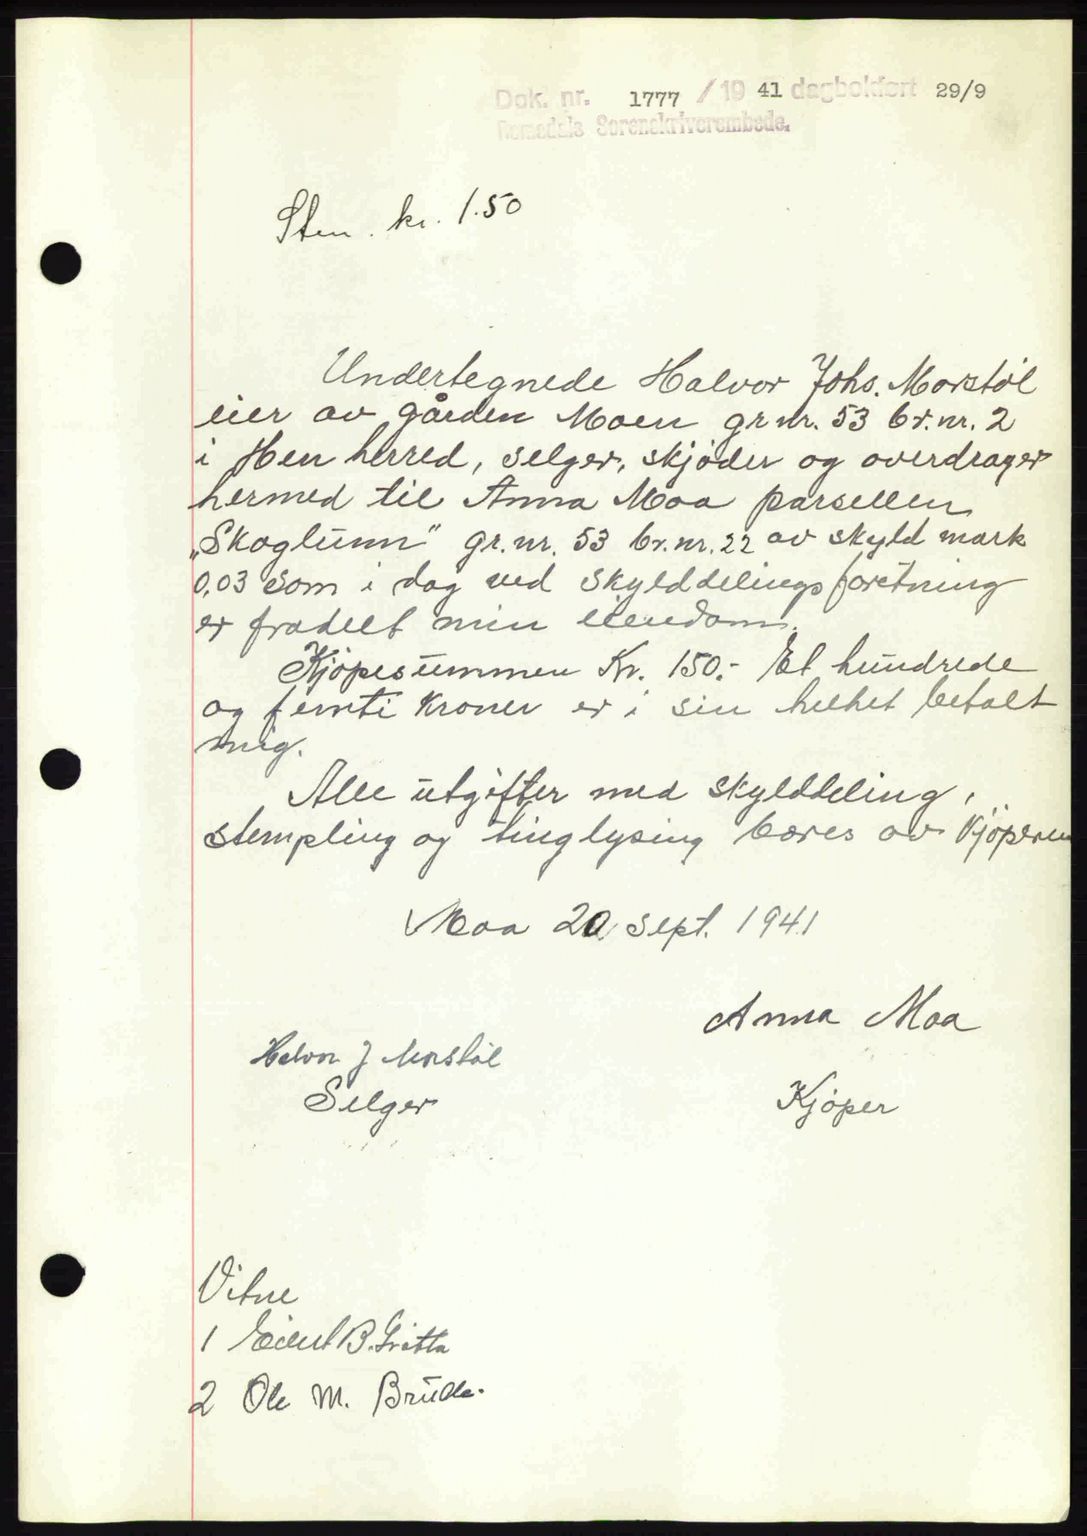 Dok. nr. 1777 / 19 41 dagbokført 29/9
Romsdals Sorenskriverembede.
Stem. kr. 1.50
Undertegnede Halvor Johs. Morstøl
eier av gården Moen gr.nr. 53 br.nr. 2
i Hen herred, selger, skjøder og overdrager
hermed til Anna Moa parsellen
„Skoglunn" gr.nr. 53 br.nr. 22 av skyld mark
0,03 som i dag ved skylddelingsforetning
er fradelt min eiendom.
Kjøpesummen Kr. 150.- Et hundrede
og femti kroner er i sin helhet betalt
mig.
Alle utgifter med skylddeling,
stempling og tinglysing bæres av Kjøperen
Moa 20 sept. 1941
Anna Moa
Halvor J Morstøl
Selger
Kjøper
Vitne
1 Eilert B.
2 Ole M. Brude.